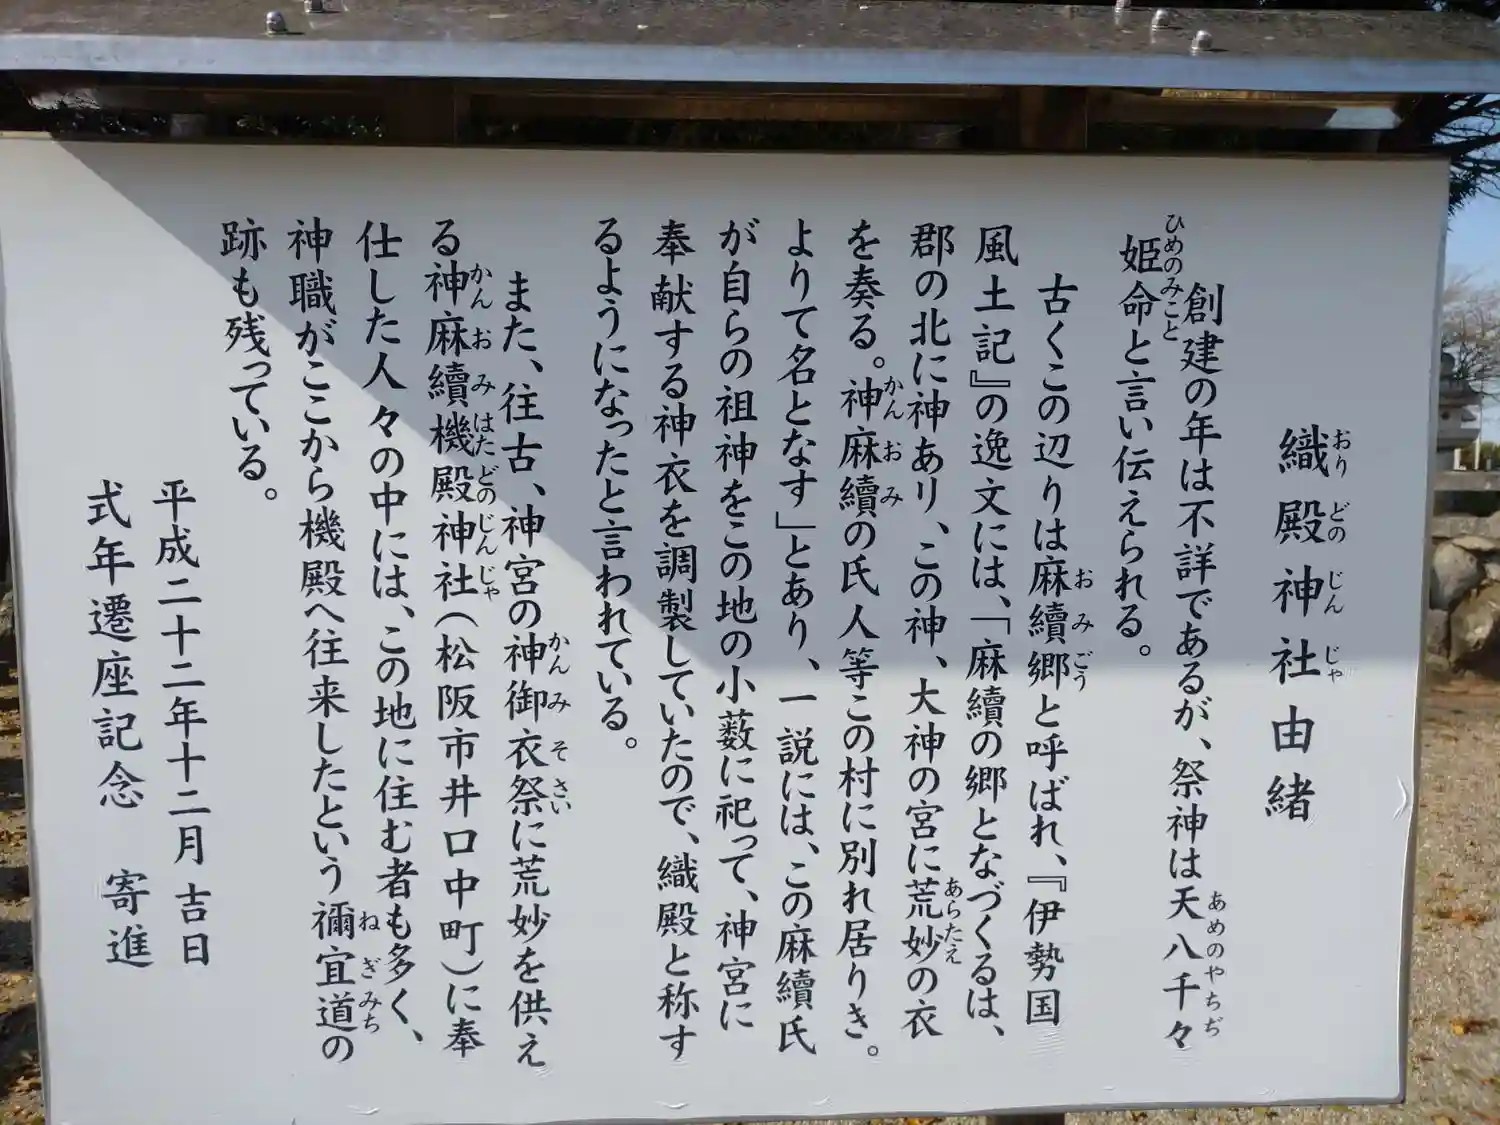 織殿神社由緒
創建の年は不詳であるが、祭神は天八千々
姫命と言い伝えられる。
古くこの辺りは麻續郷と呼ばれ、『伊勢国
風土記』の逸文には、「麻續の郷となづくるは、
郡の北に神あり、この神、大神の宮に荒妙の衣
を奏る。神麻續の氏人等この村に別れ居りき。
よりて名となす」とあり、一説には、この麻續氏
が自らの祖神をこの地の小藪に祀って、神宮に
奉献する神衣を調製していたので、織殿と称す
るようになったと言われている。
また、往古、神宮の神御衣祭に荒妙を供え
る神麻續機殿神社(松阪市井口中町)に奉
仕した人々の中には、この地に住む者も多く、
神職がここから機殿へ往来したという禰宜道の
跡も残っている。
平成二十二年十二月吉日
式年遷座記念 寄進